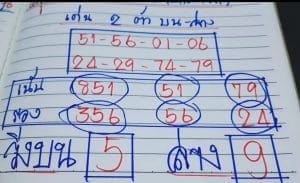 เด่น 2 ตัว บน-ล่าง
51-56-01-06
24-29-74-79
เน้น 851 51 79
รอง 356 56 24
วิ่งบน 5 ล่าง 9